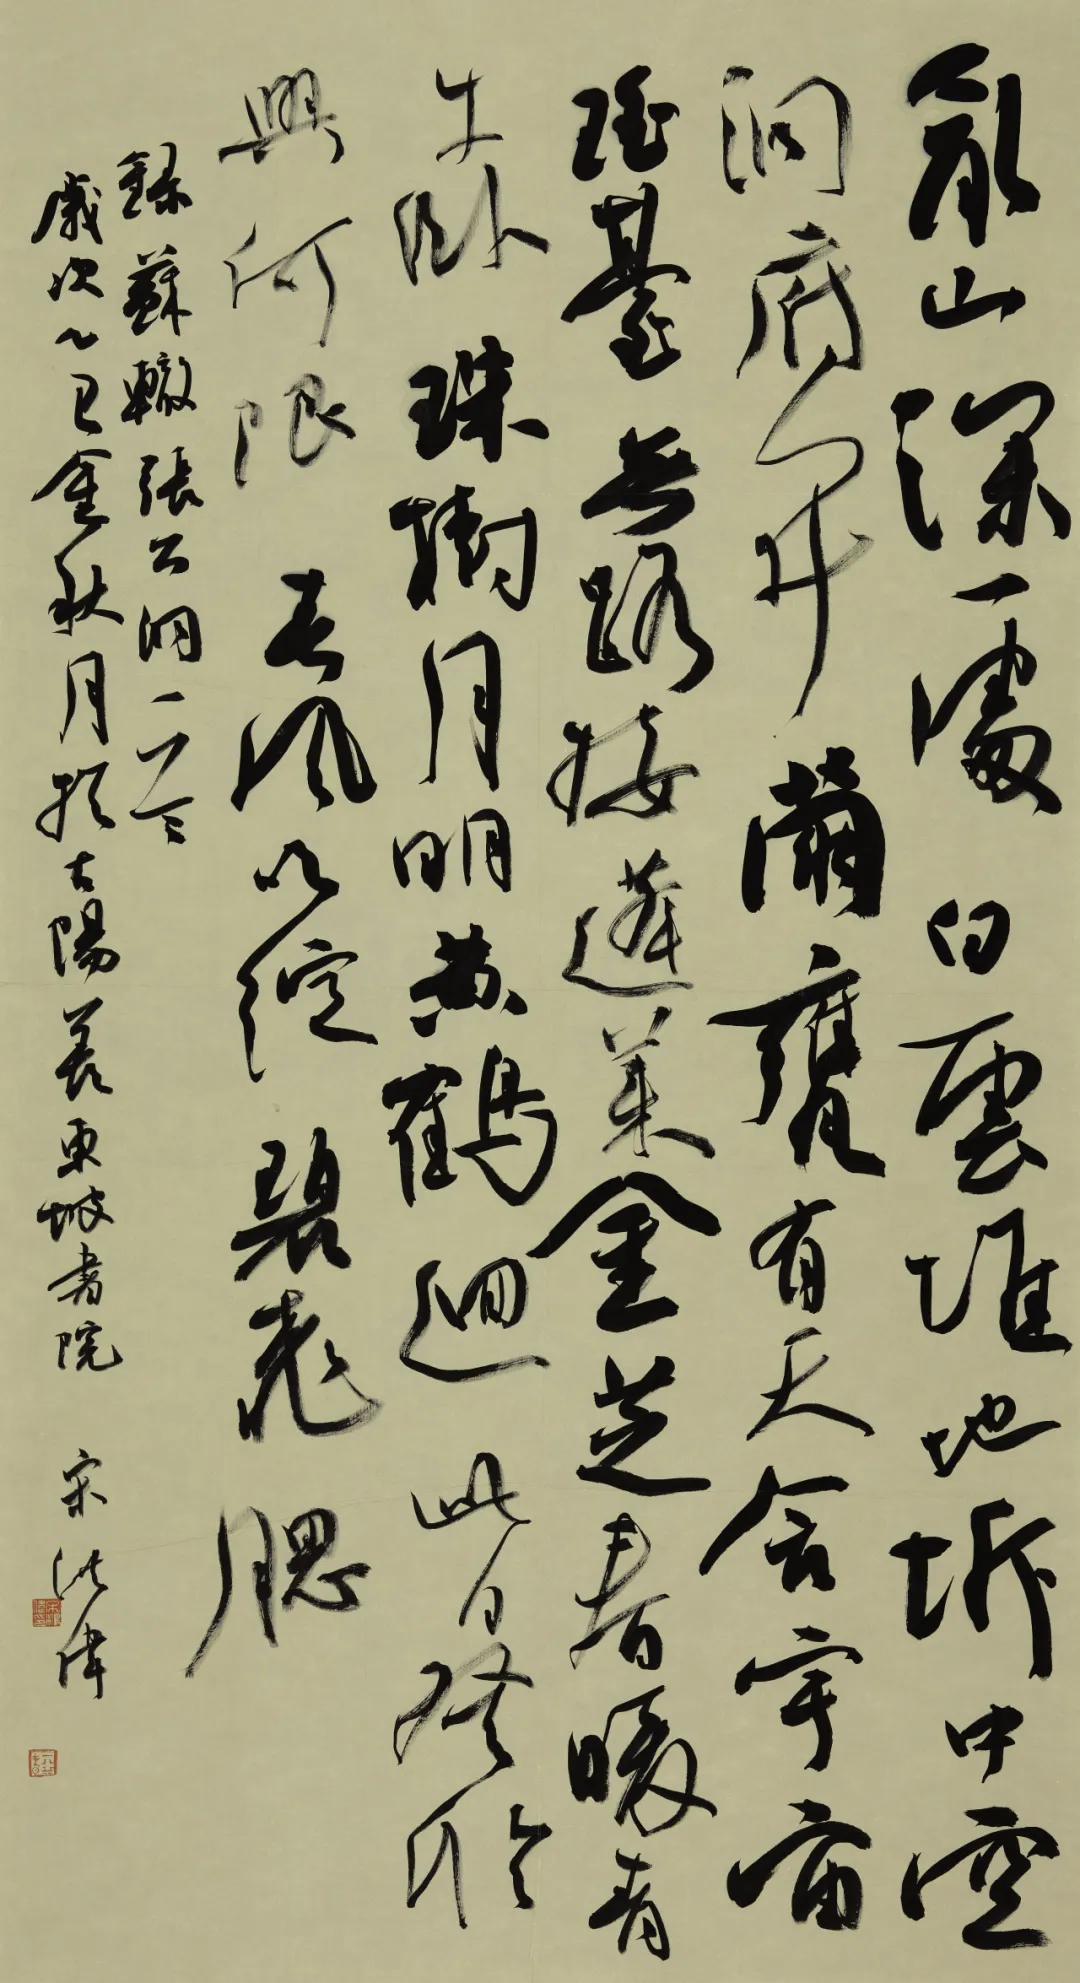 亂山深處白雲堆地坼中空
洞府開繭甕有天含宇宙
瑤臺無路接蓬萊金芝春暖青
牛卧珠樹月明黄鶴迴此日登臨
興何限春風吹綻碧桃腮
錄蘇轍張公洞一首
歲次乙巳金秋月於古陽羨東坡書院 宋洪偉